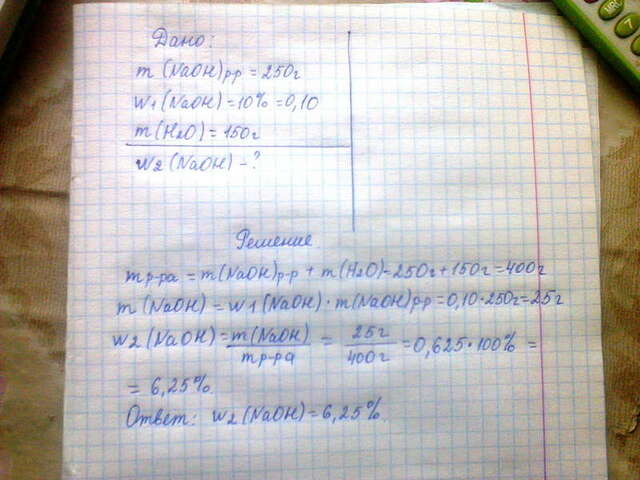 Дано:
m (NaOH)рр = 250г
w1 (NaOH) = 10% = 0,10
m (H2O) = 150г
w2 (NaOH) - ?
Решение.
mр-ра = m(NaOH)р-р + m(H2O)=250г+150г=400г
m (NaOH) = w1 (NaOH) · m(NaOH)рр=0,10·250г=25г
w2 (NaOH) = m(NaOH)/mр-ра = 25г/400г = 0,625·100% =
= 6,25%
Ответ: w2 (NaOH) = 6,25%.